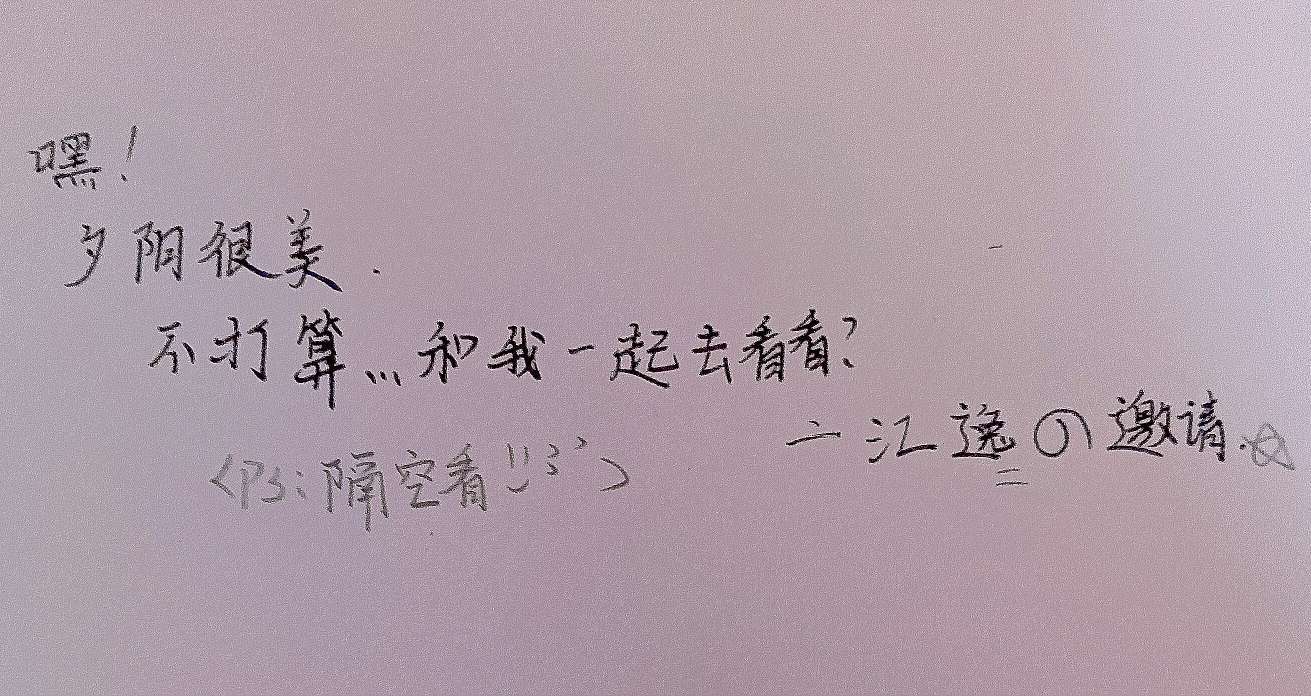 嘿！
夕阳很美.
不打算...和我一起去看看?
一江逸の邀请.☆
(PS:隔空看!!